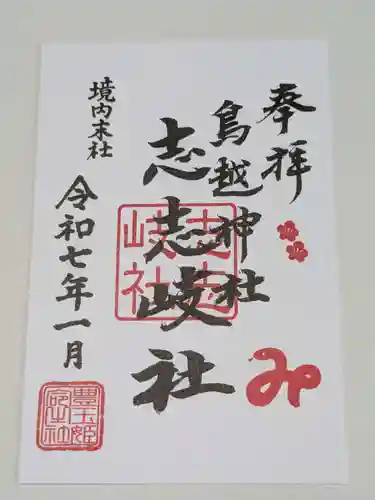 奉拝
鳥越神社
志志岐社
志志岐社
境内末社
令和七年一月